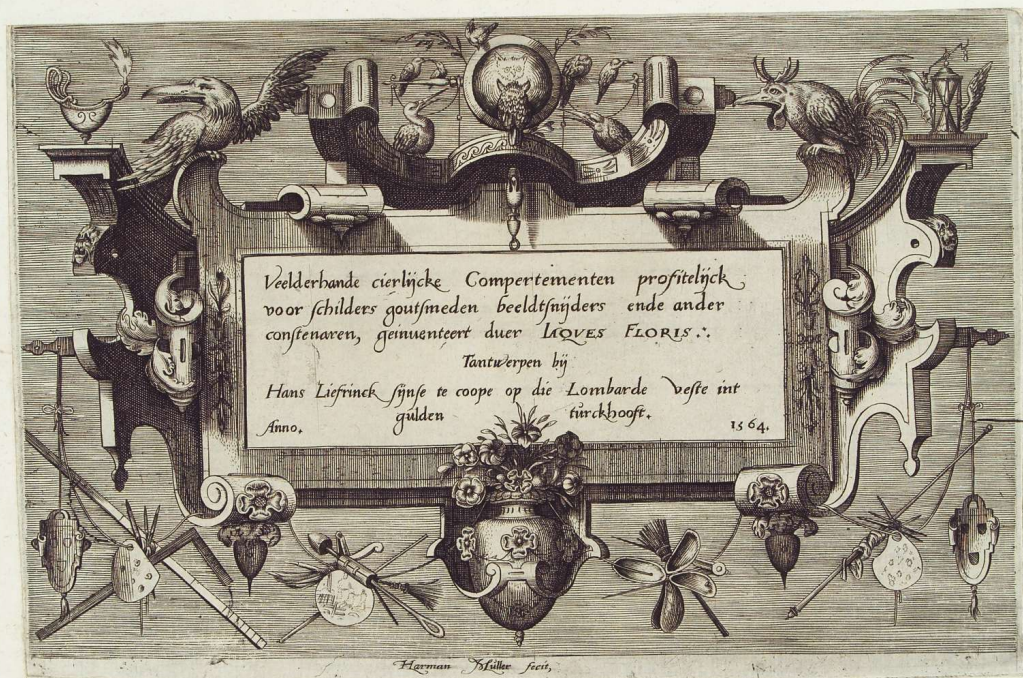 Veelderhande cierlijcke Compertementen profitelijck
voor schilders goutsmeden beeldtsnijders ende ander
constenaren, geinuenteert duer IAQVES FLORIS∴
Tantwerpen bij
Hans Liefrinck sijnse te coope op die Lombarde Veste int
gulden turckhooft.
Anno. 1564.
Harman Müller fecit,